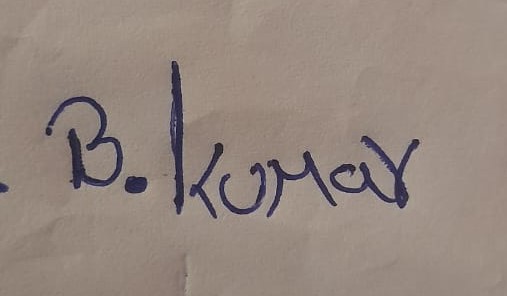 . B. Kumar